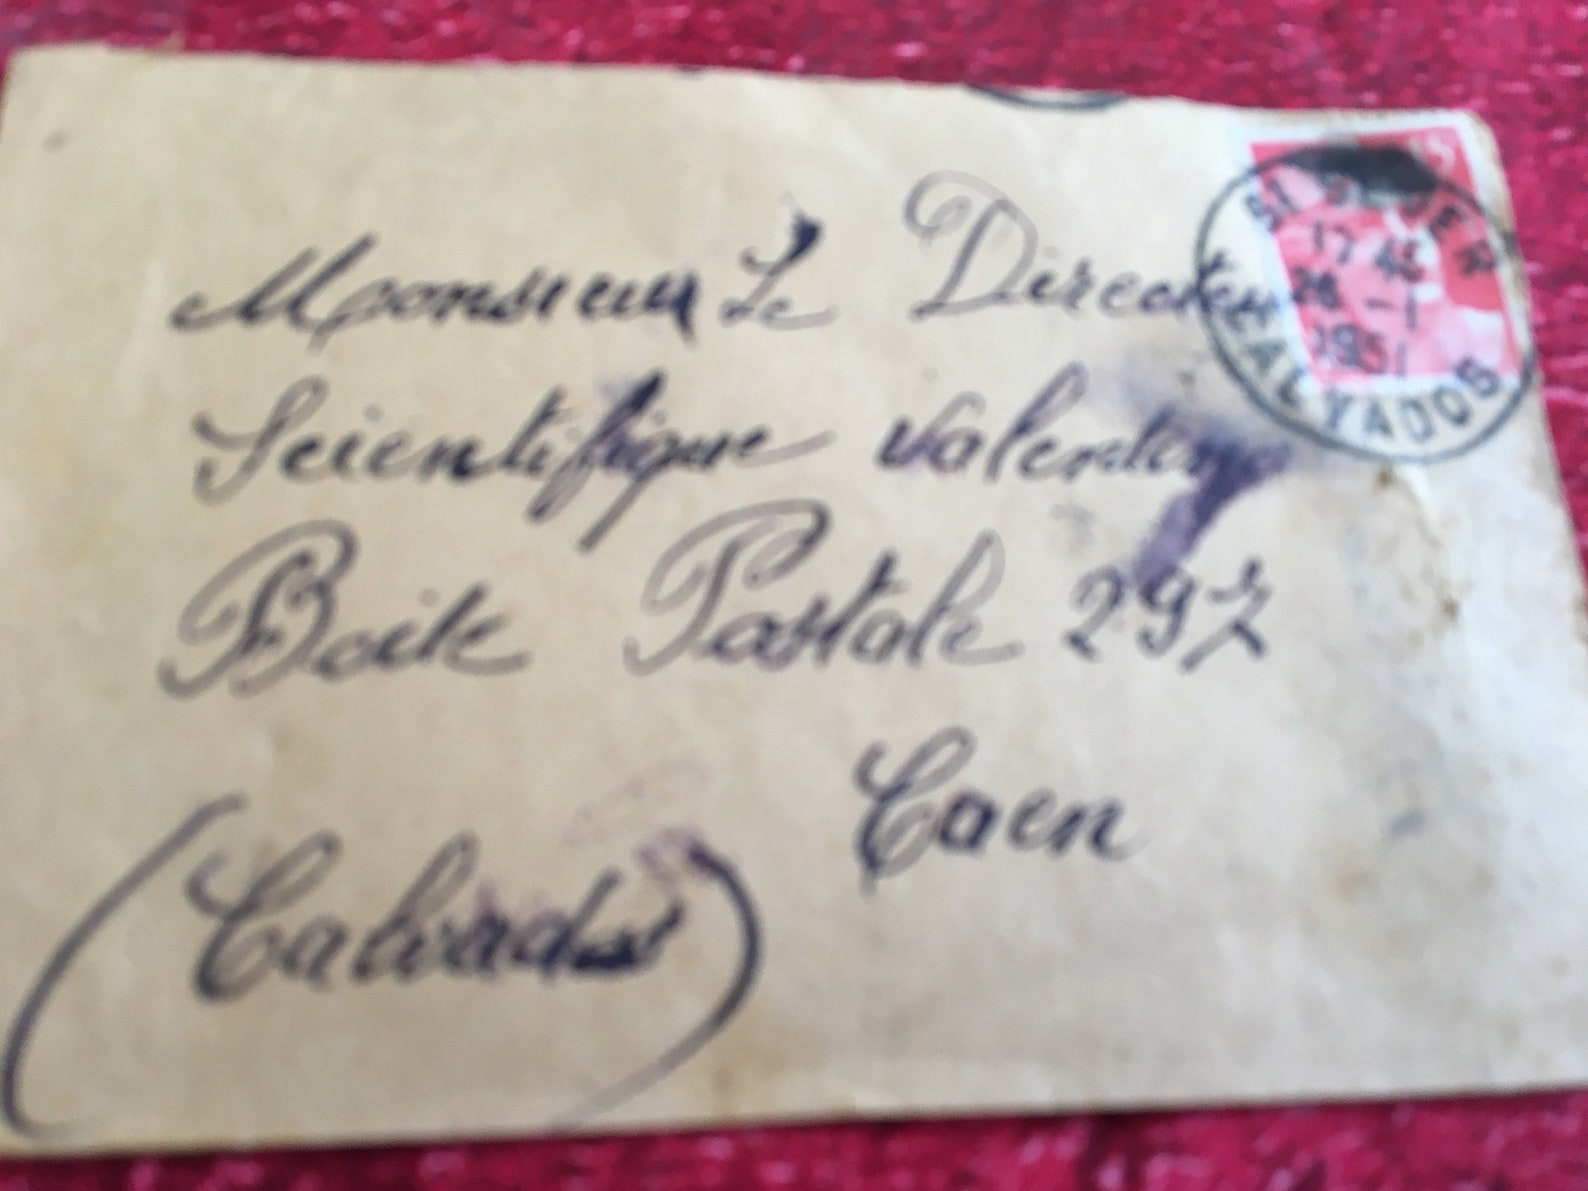 Monsieur Le Directeur
Scientifique
Boite Postale 297
Caen
(Calvados)
15
17 45
26 - 1
1951
CALVADOS